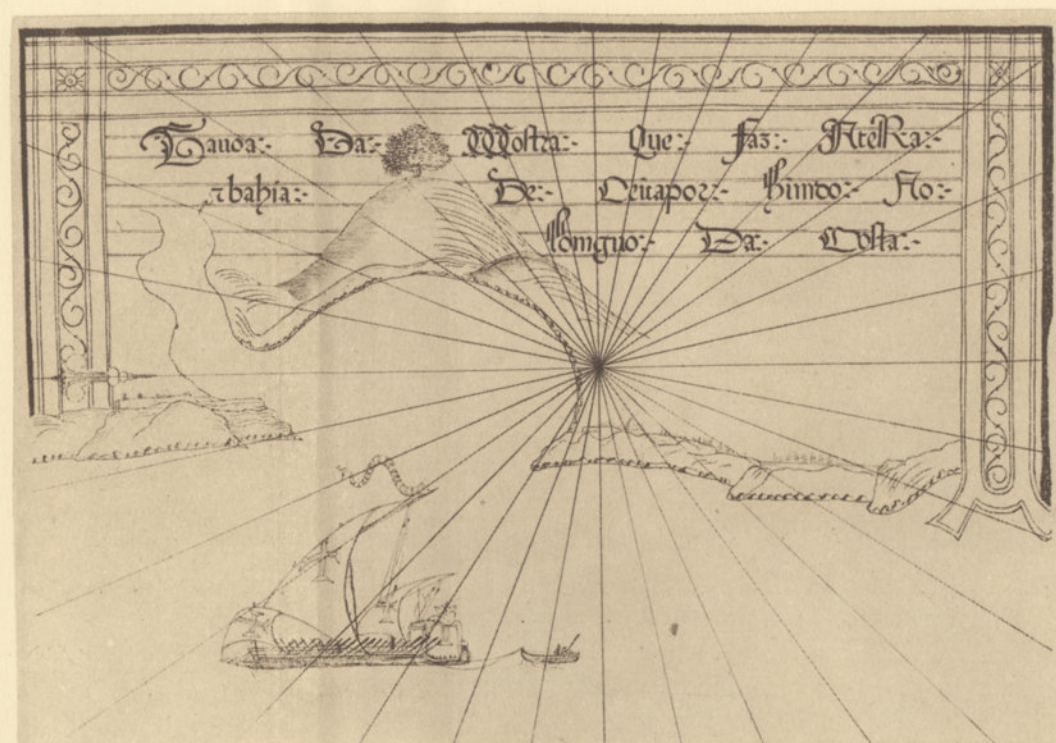 Tauoa:- Da:- Mostra:- Que:- Faz:- AteRa:-
⁊ bahia:- De:- Ceitapor:- Himdo:- Ao:-
Lomguo:- Da:- Costa:-